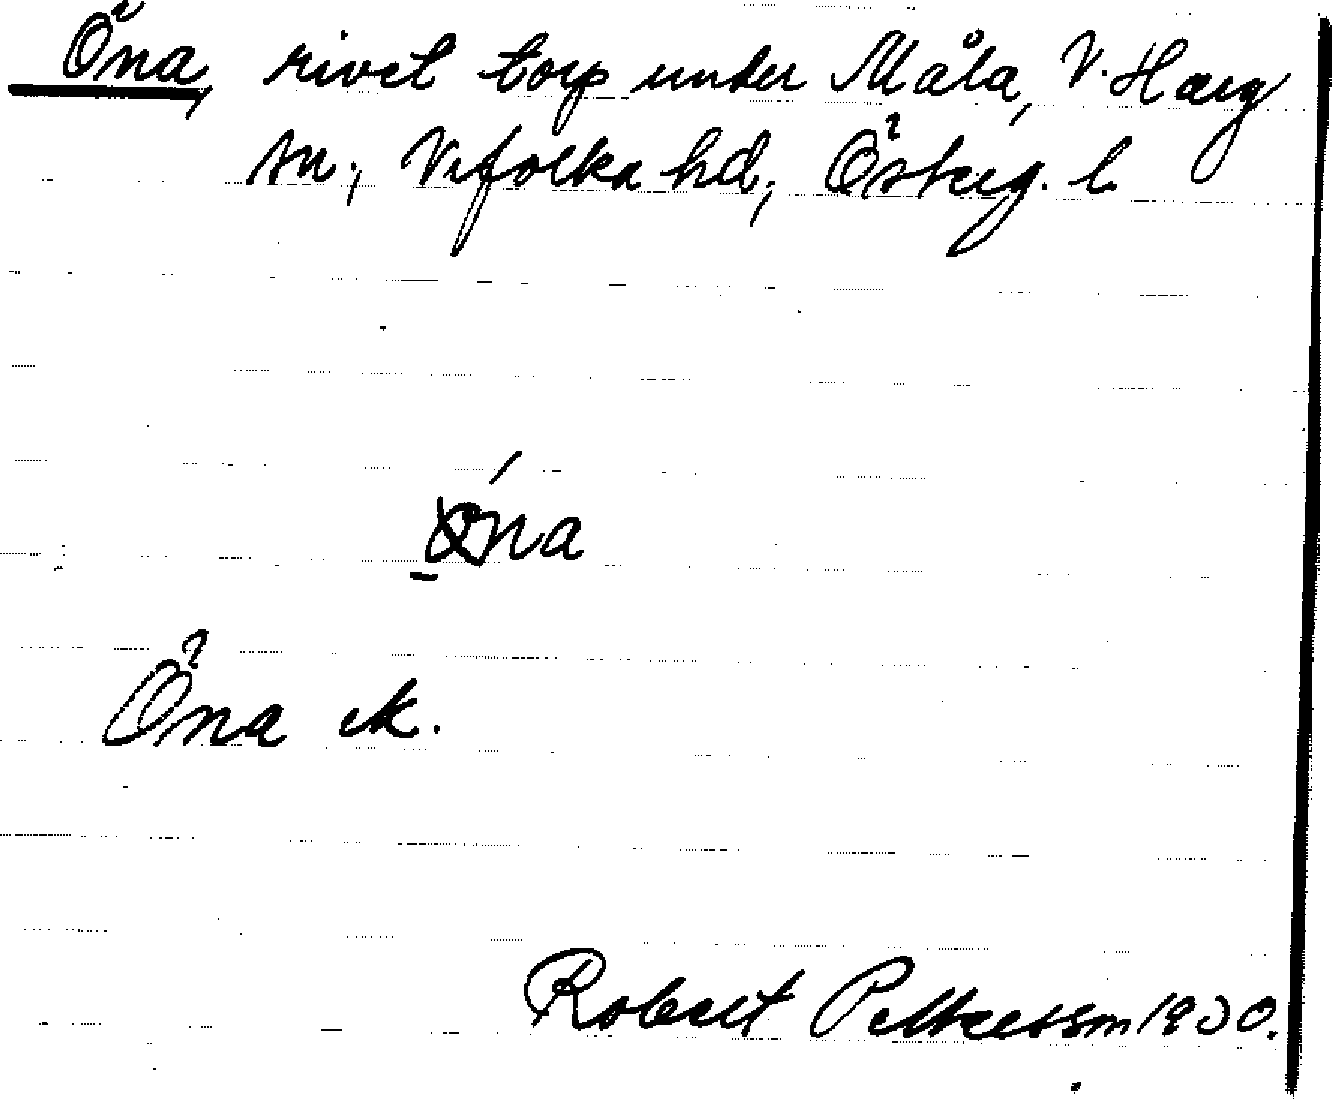 Öna, rivet torp under Måla, V. Harg
sn., Vifolka hd., Österg. l.
Öna ek.
Robert Pettersson 1930.